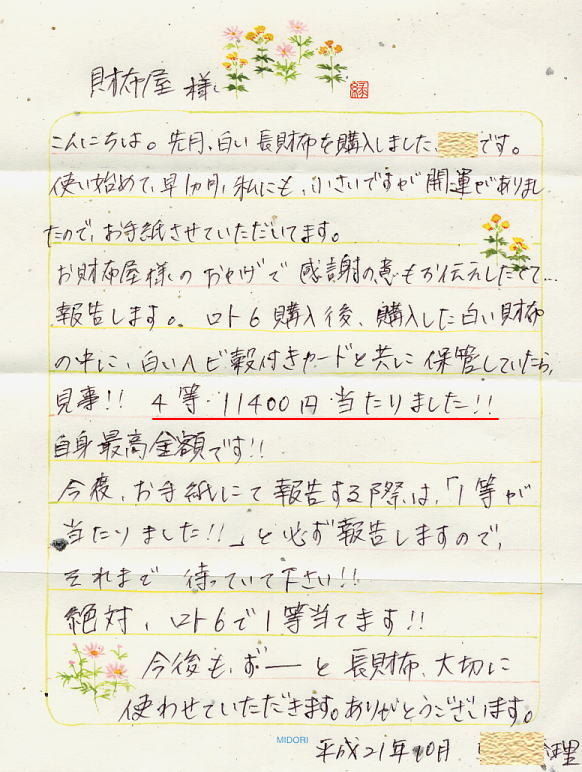 財布屋 様
縁
こんにちは。先月、白い長財布を購入しました、です。
使い始めて、早1カ月、私にも、小さいですが開運がありまし
たので、お手紙させていただいてます。
お財布屋様のおかげで 感謝の意もお伝えしたくて…
報告します。ロト6購入後、購入した白い財布
の中に、白いヘビ殻付きカードと共に保管していたら、
見事!! 4等・11400円・当たりました!!
自身最高金額です!!
今度、お手紙にて報告する際は、「1等が
当たりました!!」と必ず報告しますので、
それまで 待っていて下さい!!
絶対、ロト6で1等当てます!!
今後も、ずーっと長財布、大切に
使わせていただきます。ありがとうございます。
MIDORI
平成21年10月 理